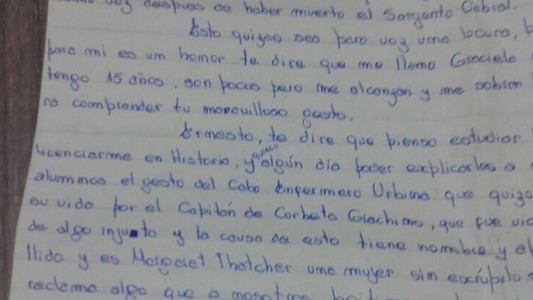 voz despues de haber muerto el Sargento Cabral.
Esto quizás sea para voz una locura,
para mi es un honor te dire que me llamo Graciela
tengo 15 años, son pocos pero me alcanzan y me sobran
ra comprender tu maravilloso gesto.
Ernesto, te dire que pienso estudiar
licenciarme en Historia, y algún dia poder explicarles a
alumnos el gesto del Cabo Enfermero Urbina que
su vida por el Capitán de Corbeta Giachino, que fue
de algo injusto y la causa de esto tiene nombre y
llido y es Margaret Thatcher una mujer sin escrúpulo
reclamo algo que a nosotros